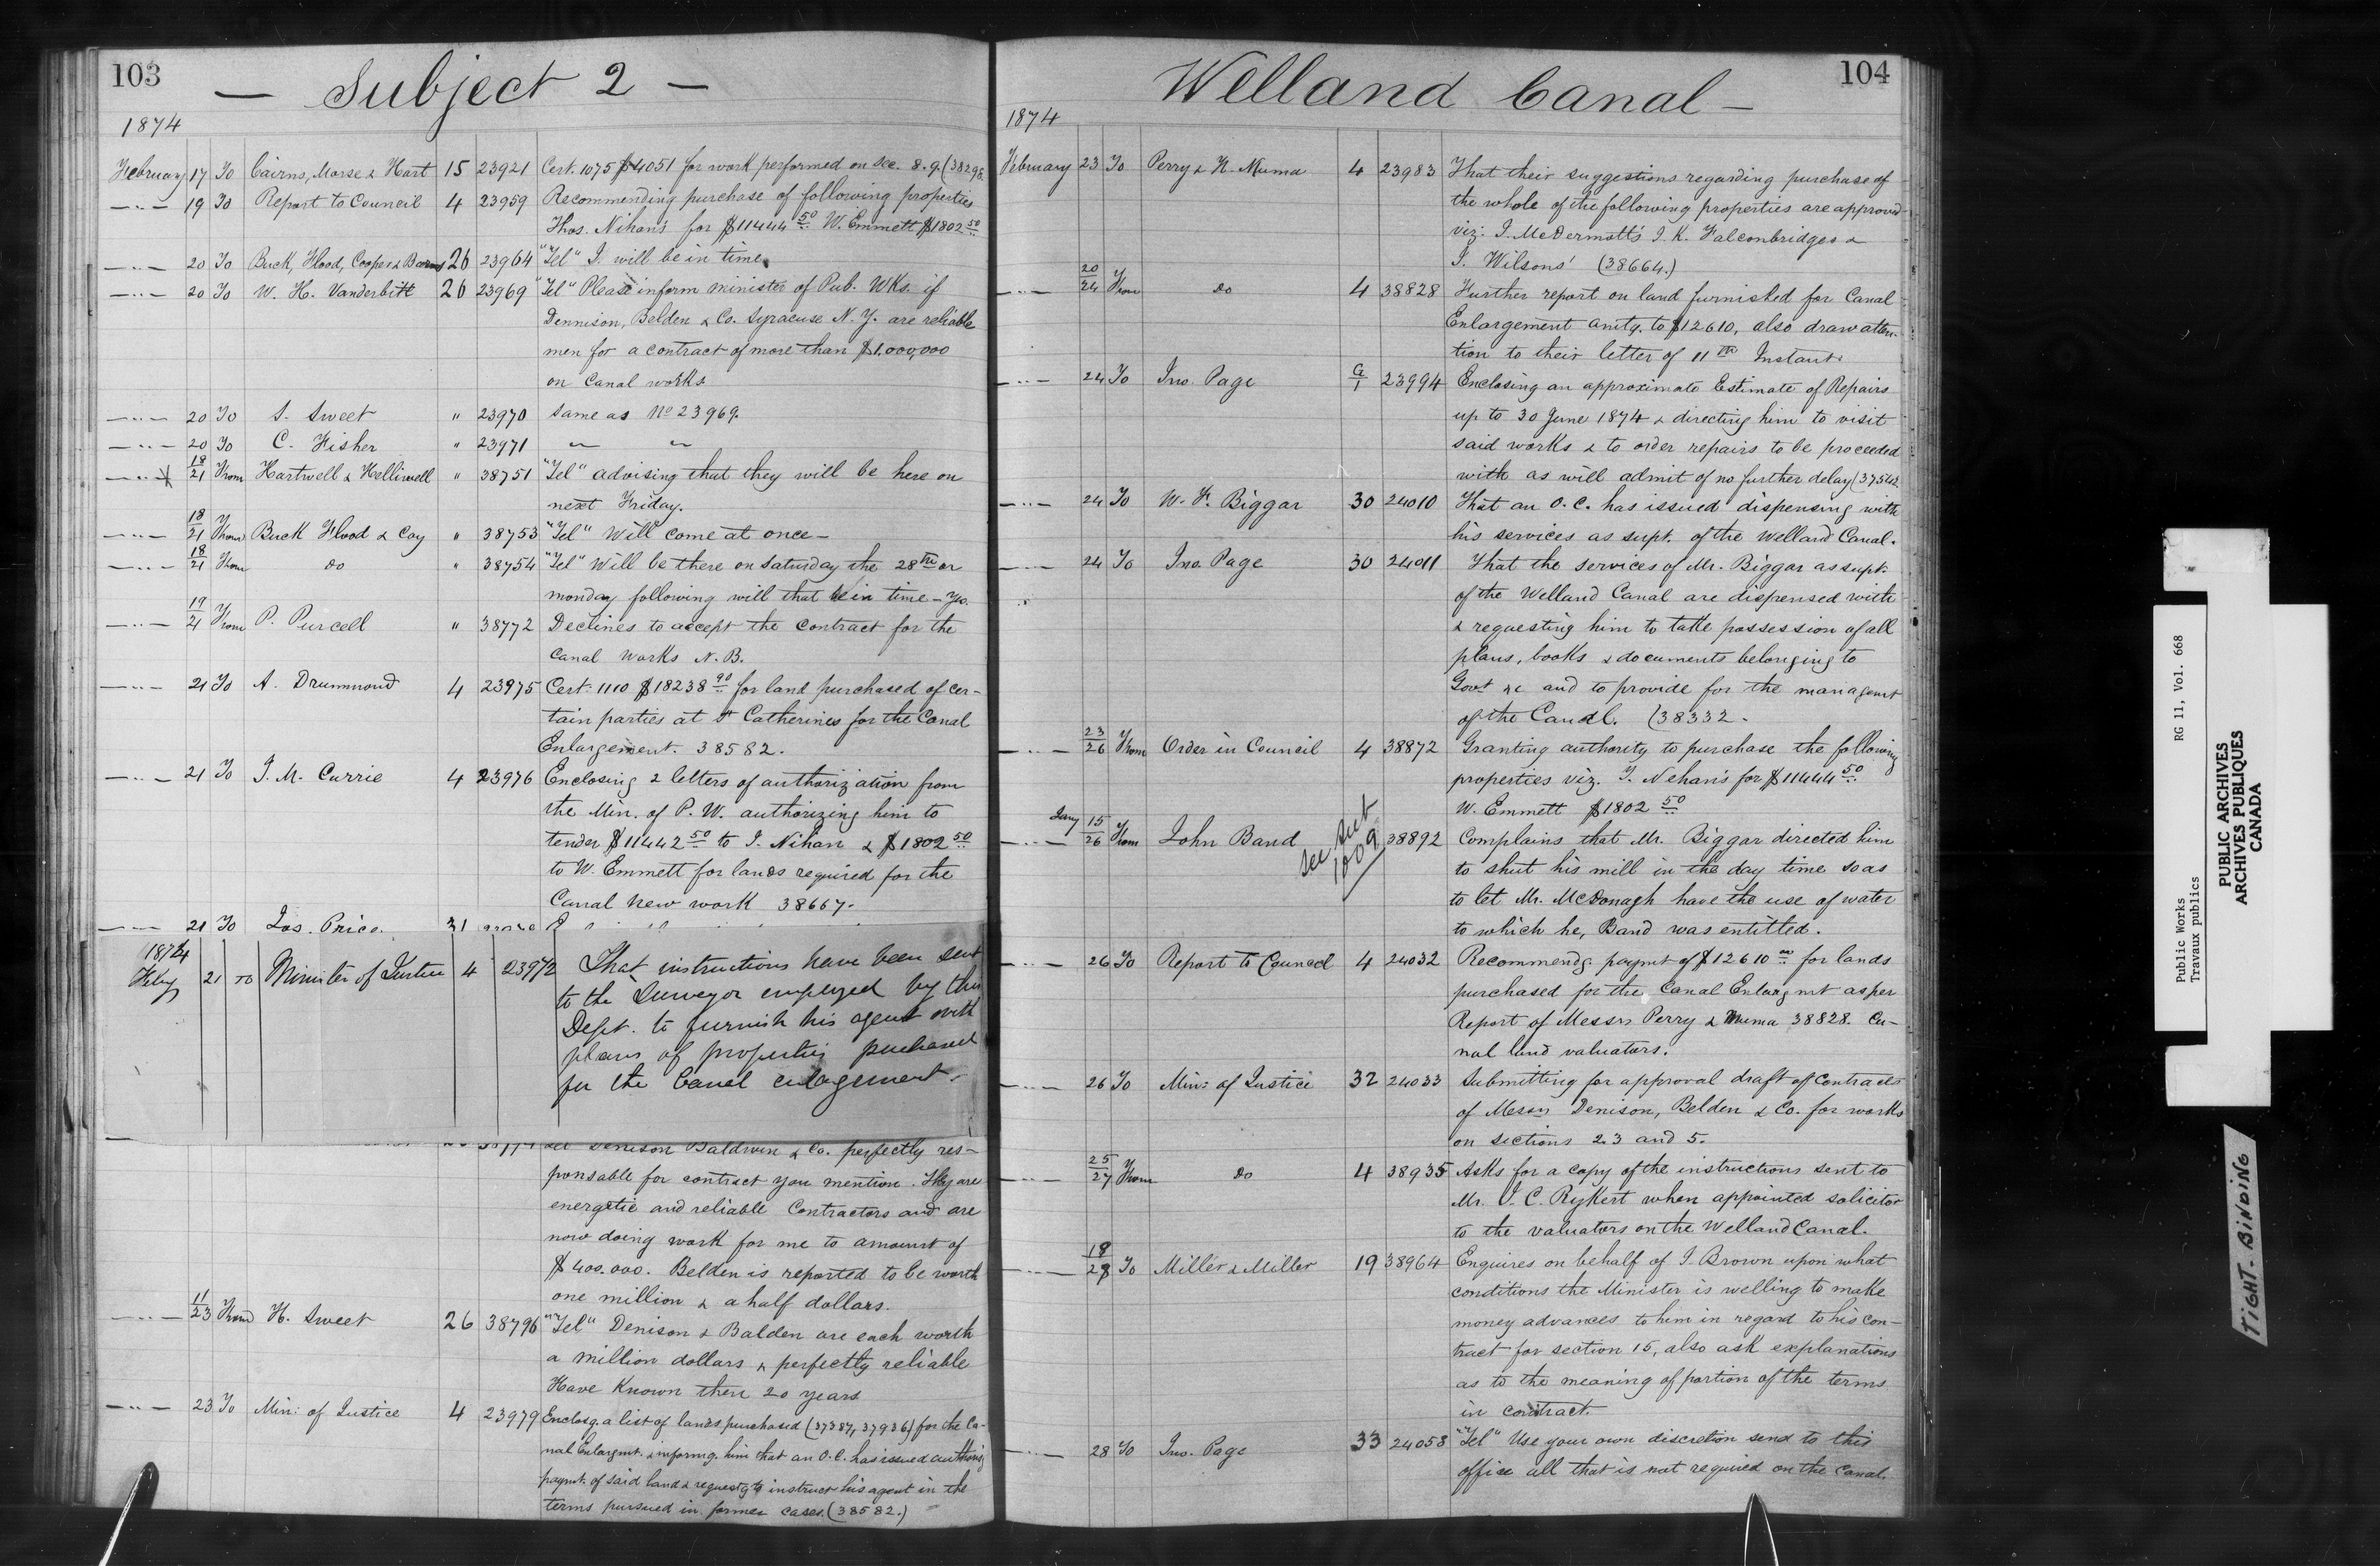 103
— Subject 2 —
1874
February 17 To Cairns, Morse & Hart 15 23921 Cert. 1075 $4051 for work performed on sec. 8.9. (38298
—〃— 19 To Report to Council 4 23959 Recommending purchase of following properties
Thos. Nihan's for $11444 50 W. Emmett $1802 50
—〃— 20 To Buck, Hood, Cooper & Barns 26 23964 "Tel" I. will be in time
—〃— 20 To W. H. Vanderbilt 26 23969 "Tel" Please inform minister of Pub. Wks. if
Dennison, Belden & Co. Syracuse N. Y. are reliable
men for a contract of more than $1.000,000
on Canal works
—〃— 20 To S. Sweet " 23970 Same as No 23969.
—〃— 20 To C. Fisher " 23971 〃 〃
—〃— 18/21 From Hartwell & Helliwell " 38751 "Tel" advising that they will be here on
next Friday.
—〃— 18/21 From Buck Flood & Coy " 38753 "Tel" Will come at once—
—〃— 18/21 From do " 38754 "Tel" Will be there on Saturday the 28th or
monday following will that be in time — Yes.
—〃— 19/21 From P. Purcell " 38772 Declines to accept the contract for the
Canal Works N. B.
—〃— 21 To A. Drummond 4 23975 Cert. 1110 $18238 90 for land purchased of cer-
tain parties at St Catherines for the Canal
Enlargement. 38582.
—〃— 21 To J. M. Currie 4 23976 Enclosing 2 letters of authorization from
the Min. of P. W. authorizing him to
tender $11442 50 to T. Nihan & $1802 50
to W. Emmett for lands required for the
Canal new work 38667.
—〃— 21 To Jas. Price. 31
1874
Feby 21 To Minister of Justice 4 23972 That instructions have been sent
to the Surveyor employed by this
Dept. to furnish his agent with
plans of properties purchased
for the Canal enlagement.
Denison Baldwin & Co. perfectly res-
ponsable for contract you mention. They are
energetic and reliable Contractors and are
now doing work for me to amount of
$400.000. Belden is reported to be worth
one million & a half dollars.
—〃— 11/23 From H. Sweet 26 38796 "Tel" Denison & Balden are each worth
a million dollars & perfectly reliable
Have Known them 20 years
—〃— 23 To Min: of Justice 4 23979 Enclosg. a list of lands purchased (37387, 37936) for the Ca-
nal Enlargmt. & informg. him that an O. C. has issued authorig
paymt. of said land & requestg to instruct his agent in the
terms pursued in former cases. (38582.)
104
Welland Canal —
1874
February 23 To Perry & H. Muma 4 23983 That their suggestions regarding purchase of
the whole of the following properties are approved
viz: J. McDermott's J. K. Falconbridges &
J. Wilsons' (38664.)
—〃— 20/24 From do 4 38828 Further report on land furnished for Canal
Enlargement amtg. to $12610, also draw atten-
tion to their letter of 11th Instant.
—〃— 24 To Jno. Page G/1 23994 Enclosing an approximate Estimate of Repairs
up to 30 June 1874 & directing him to visit
said works & to order repairs to be proceeded
with as will admit of no further delay (37542
—〃— 24 To W. F. Biggar 30 24010 That an O. C. has issued dispensing with
his services as supt. of the Welland Canal.
—〃— 24 To Jno. Page 30 24011 That the services of Mr. Biggar as supt.
of the Welland Canal are dispensed with
& requesting him to take possession of all
plans, books & documents belonging to
Govt &c and to provide for the managemt
of the Canal. (38332.
—〃— 23/26 From Order in Council 4 38872 Granting authority to purchase the following
properties viz. T. Nehan's for $11444 50
W. Emmett $1802 50
Jany 15/26 From John Band See Sub 1009 38892 Complains that Mr. Biggar directed him
to shut his mill in the day time so as
to let Mr. McDonagh have the use of water
to which he, Band was entitled.
—〃— 26 To Report to Council 4 24032 Recommendg. paymt of $12610 00 for lands
purchased for the Canal Enlargmt as per
Report of Messrs Perry & Muma 38828. Ca-
nal land valuators.
—〃— 26 To Min: of Justice 32 24033 Submitting for approval draft of contracts
of Messrs Denison, Belden & Co. for works
on sections 2.3 and 5.
—〃— 25/27 From do 4 38935 Asks for a copy of the instructions sent to
Mr. J. C. Rykert when appointed solicitor
to the valuators on the Welland Canal.
—〃— 18/28 To Miller & Miller 19 38964 Enquires on behalf of J. Brown upon what
conditions the Minister is welling to make
money advances to him in regard to his con-
tract for section 15, also ask explanations
as to the meaning of portion of the terms
in contract.
—〃— 28 To Jno. Page 33 24053 "Tel" Use your own discretion send to this
office all that is not required on the Canal.
Public Works RG 11, Vol. 668
Travaux publics
PUBLIC ARCHIVES
ARCHIVES PUBLIQUES
CANADA
TIGHT BINDING